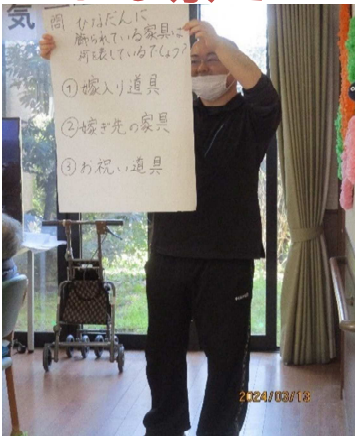 気
問 ひなだんに
飾られている家具は
何を表しているでしょう?
①嫁入り道具
②嫁ぎ先の家具
③お祝い道具
2024/03/13